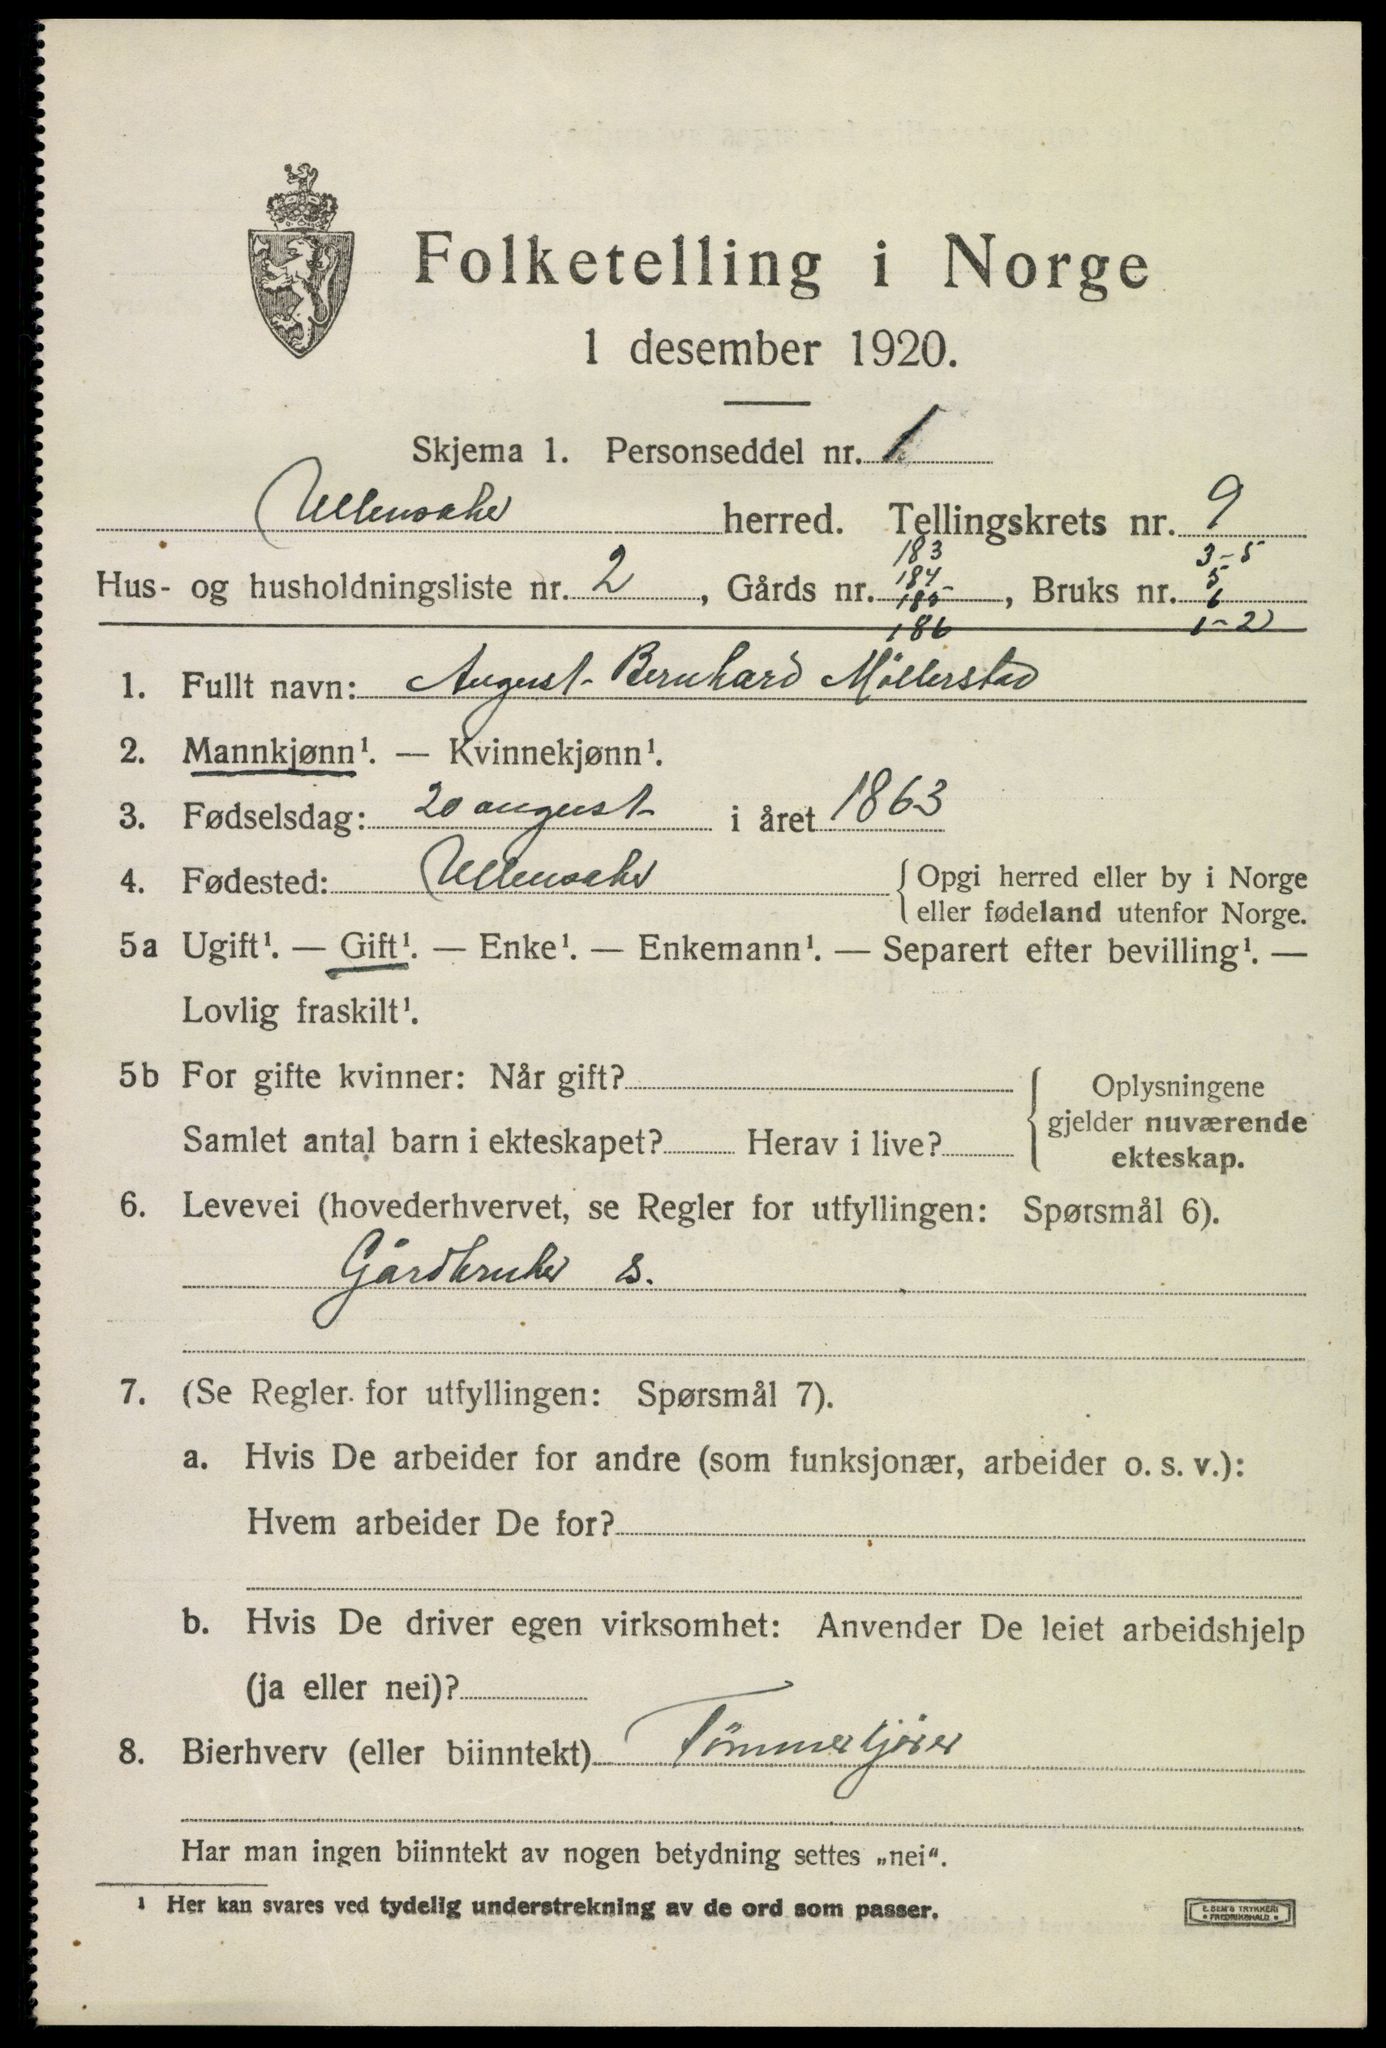 Folketelling i Norge
1 desember 1920.
Skjema 1. Personseddel nr. 1
Ullensaker herred. Tellingskrets nr. 9
Hus- og husholdningsliste nr. 2, Gårds nr. 183 184 185 186, Bruks nr. 3-5 5 6 1-2
1. Fullt navn: August Bernhard Möllerstad
2. Mannkjønn¹. — Kvinnekjønn¹.
3. Fødselsdag: 20 august i året 1863
4. Fødested: Ullensaker { Opgi herred eller by i Norge
eller fødeland utenfor Norge.
5a Ugift¹. — Gift¹. — Enke¹. — Enkemann¹. — Separert efter bevilling¹. —
Lovlig fraskilt¹.
5b For gifte kvinner: Når gift?
Samlet antal barn i ekteskapet? Herav i live?
Oplysningene
gjelder nuværende
ekteskap.
6. Levevei (hovederhvervet, se Regler for utfyllingen: Spørsmål 6).
Gårdbruker s.
7. (Se Regler for utfyllingen: Spørsmål 7).
a. Hvis De arbeider for andre (som funksjonær, arbeider o. s. v.):
Hvem arbeider De for?
b. Hvis De driver egen virksomhet: Anvender De leiet arbeidshjelp
(ja eller nei)?
8. Bierhverv (eller biinntekt) Tömmerkjörer
Har man ingen biinntekt av nogen betydning settes „nei“.
¹ Her kan svares ved tydelig understrekning av de ord som passer.
E. SEM'S TRYKKERI
• FREDRIKSHALD •